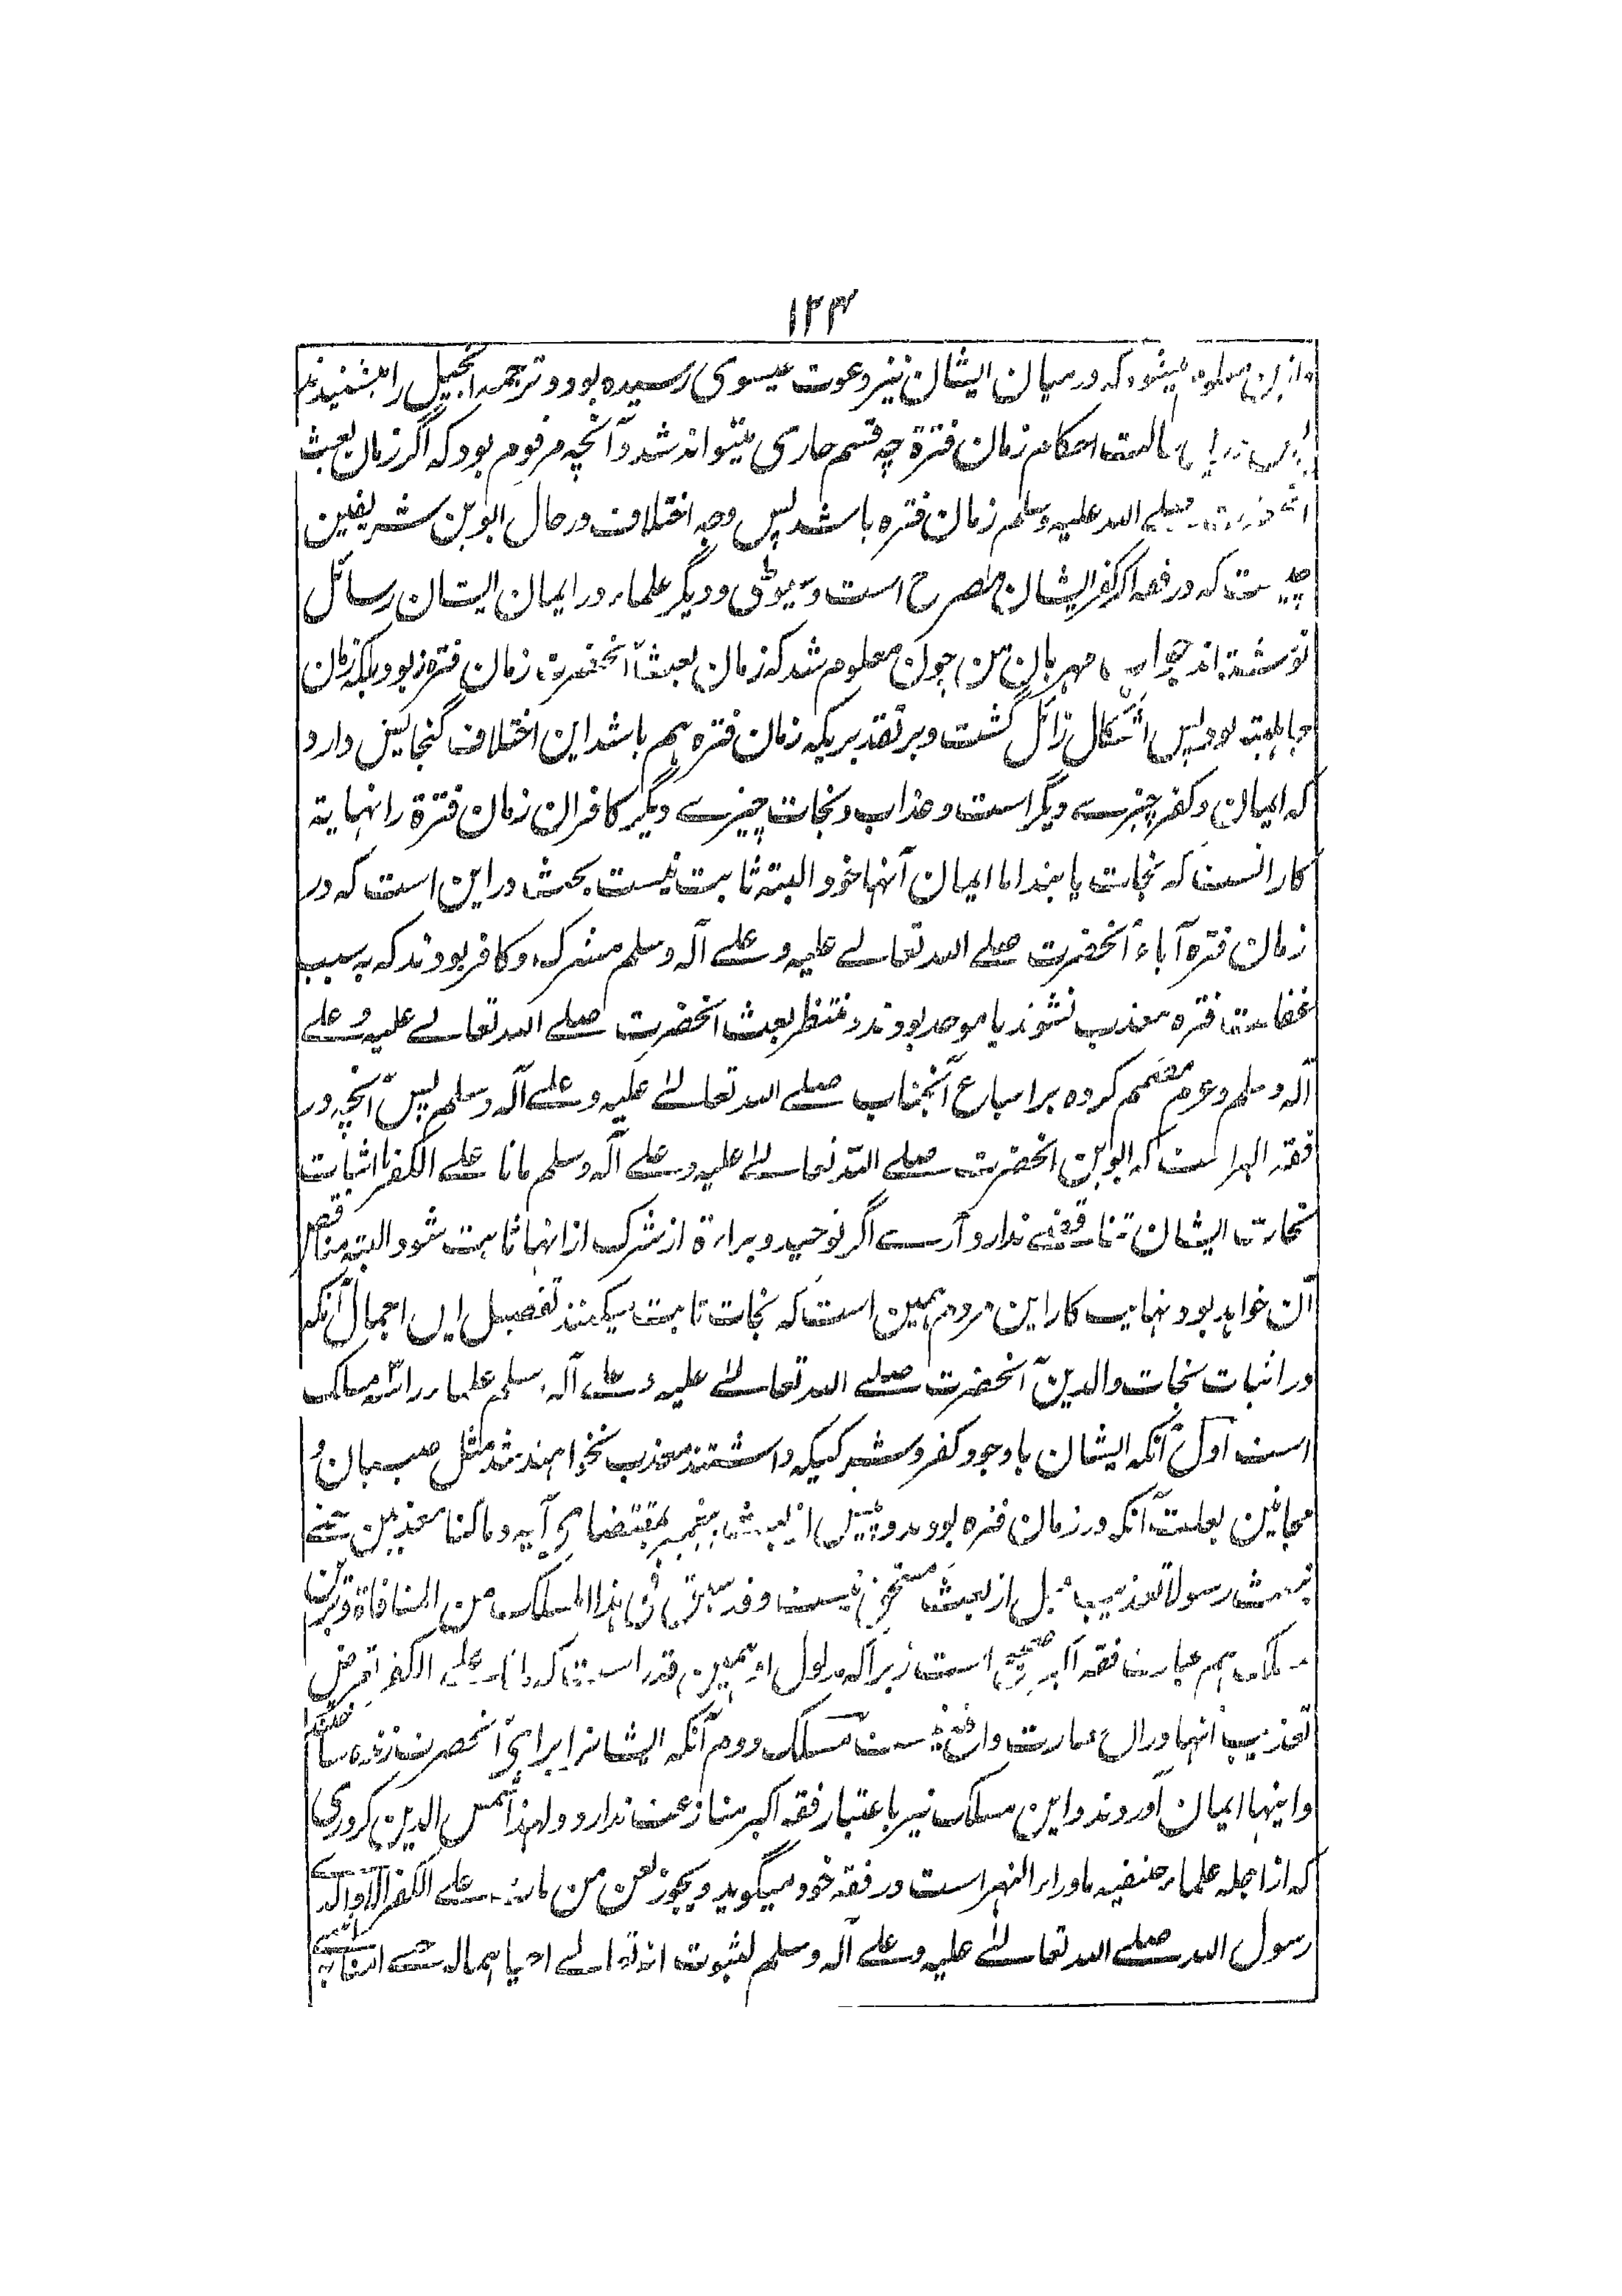 ۱۲۴
معلوم میشود که در میان ایشان نیز دعوت عیسوی رسیده بود و ترجمه انجیل را میشنیدند
احکام زمان فترة چه قسم جاری میتواند شد و آنچه مرقوم بود که اگر زمان بعثت
صلے الله علیه وسلم زمان فتره باشد پس وجه اختلاف در حال ابوین شریفین
چیست که در فقه اکبر کفر ایشان مصرح است و سیوطی و دیگر علماء در ایمان ایشان رسائل
نوشته اند جواب مهربان من چون معلوم شد که زمان بعثت آنحضرت زمان فتره نبود بلکه زمان
جاهلیته بود پس اشکال زائل گشت و بر تقدیریکه زمان فتره هم باشد این اختلاف گنجایش دارد
که ایمان و کفر چیزے دیگر است و عذاب و نجات چیزے دیگر کافران زمان فترة را نهایة
کار انست که نجات یابند اما ایمان آنها خود البته ثابت نیست بحث در این است که در
زمان فتره آباء آنحضرت صلے الله تعالے علیه و علے آله وسلم مشرک و کافر بودند که به سبب
غفلت فتره معذب نشوند یا موحد بودند و منتظر بعثت آنحضرت صلے الله تعالے علیه و علے
آله وسلم و عزم مصمم کرده بر اتباع آنجناب صلے الله تعالے علیه و علے آله وسلم پس آنچه در
فقه اکبر است که ابوین آنحضرت صلے الله تعالے علیه و علے آله وسلم ماتا علے الکفر با اثبات
نجات ایشان تناقضے ندارد آرے اگر توحید و براءة از شرک از انها ثابت شود البته مناقض
آن خواهد بود و نهایت کار این مردم همین است که نجات ثابت میکنند تفصیل این اجمال آنکه
در اثبات نجات والدین آنحضرت صلے الله تعالے علیه و علے آله وسلم علماء را سه مسلک
است اول آنکه ایشان با وجود کفر و شرکیکه داشتند معذب نخواهند شد مثل صبیان و
مجانین بعلت آنکه در زمان فتره بودند و پیش از بعثت پیغمبر بمقتضای آیه و ما کنا معذبین حتے
نبعث رسولا تعذیب قبل از بعثت متحقق نیست و قد سبق فی هذا المسلک من المنافاة و برین
مسلک هم عبارت فقه اکبر صحیح است زیرا که مدلول او همین قدر است که ماتا علے الکفر تعرض
تعذیب انها در ان عبارت واقع نیست مسلک دوم آنکه ایشانرا برای آنحضرت زنده ساختند
و اینها ایمان آوردند و این مسلک نیز باعتبار فقه اکبر منازعت ندارد و لهذا شمس الدین کروری
که از اجله علماء حنفیه ماوراء النهر است در فقه خود میگوید و یجوز لعن من مات علے الکفر الا والدے
رسول الله صلے الله تعالے علیه و علے آله وسلم لثبوت ان الله تعالے احیاهما له حتے امنا به